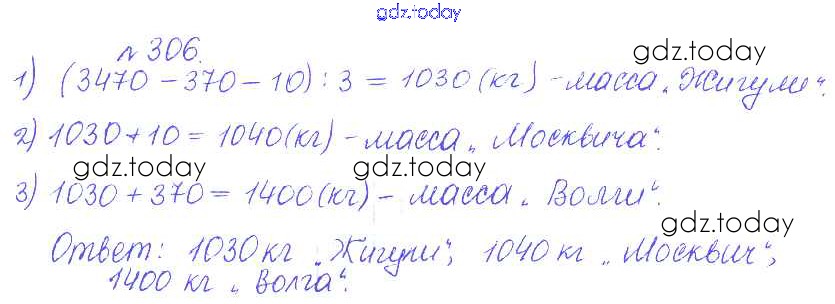 gdz.today
№ 306.
gdz.today
1) (3470 - 370 - 10) : 3 = 1030 (кг) - масса „Жигули“.
2) 1030 + 10 = 1040 (кг) - масса „Москвича“.
gdz.today
gdz.today
3) 1030 + 370 = 1400 (кг) - масса „Волги“.
gdz.today
Ответ: 1030 кг „Жигули“, 1040 кг „Москвич“,
1400 кг „Волга“.